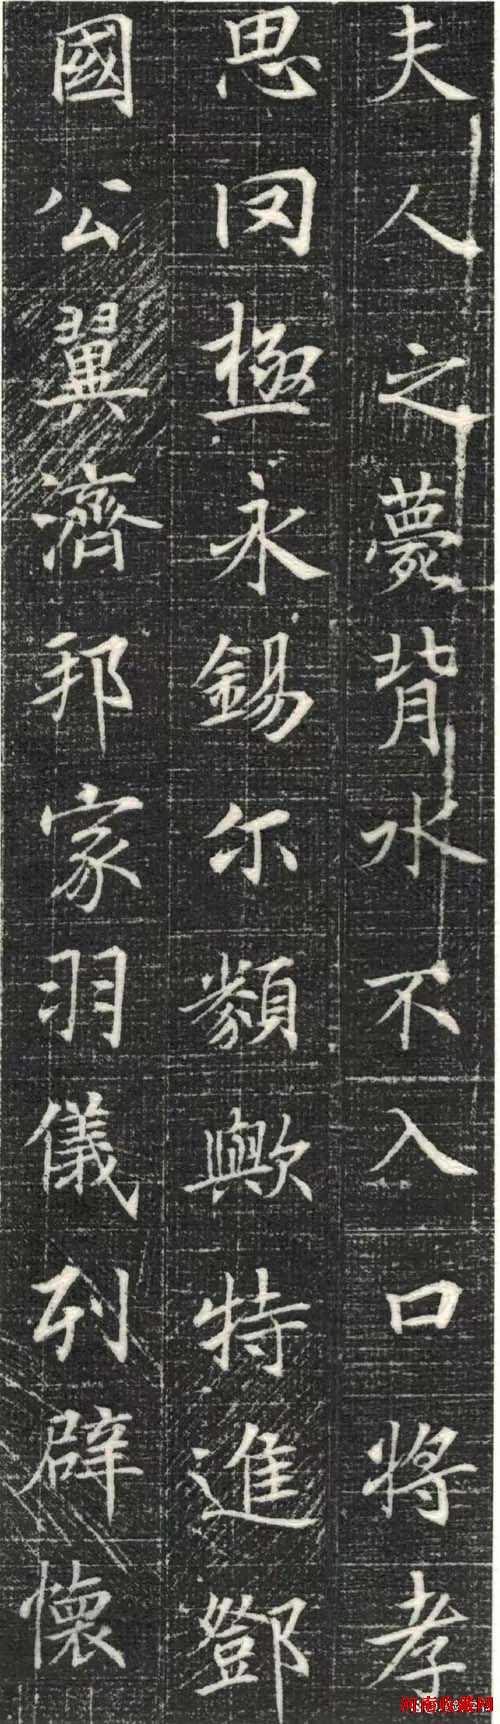 夫人之薨背水不入口將孝
思罔極永錫尒類歟特進鄧
國公翼濟邦家羽儀列辟懷
河南收藏网